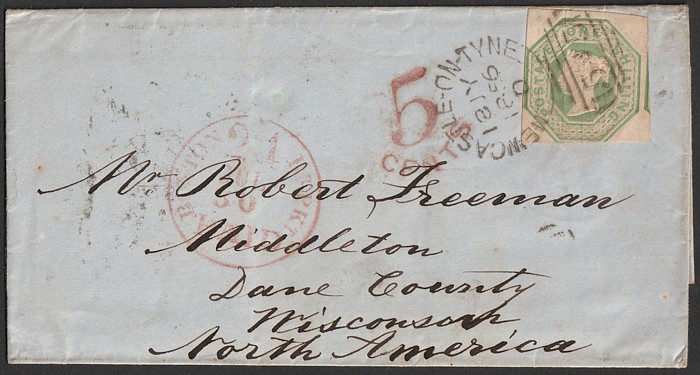 POSTAGE ONE SHILLING
NEWCASTLE-ON-TYNE
5
CENTS
BOSTON
PACKET
Mr Robert Freeman
Middleton
Dane County
Wisconsin
North America